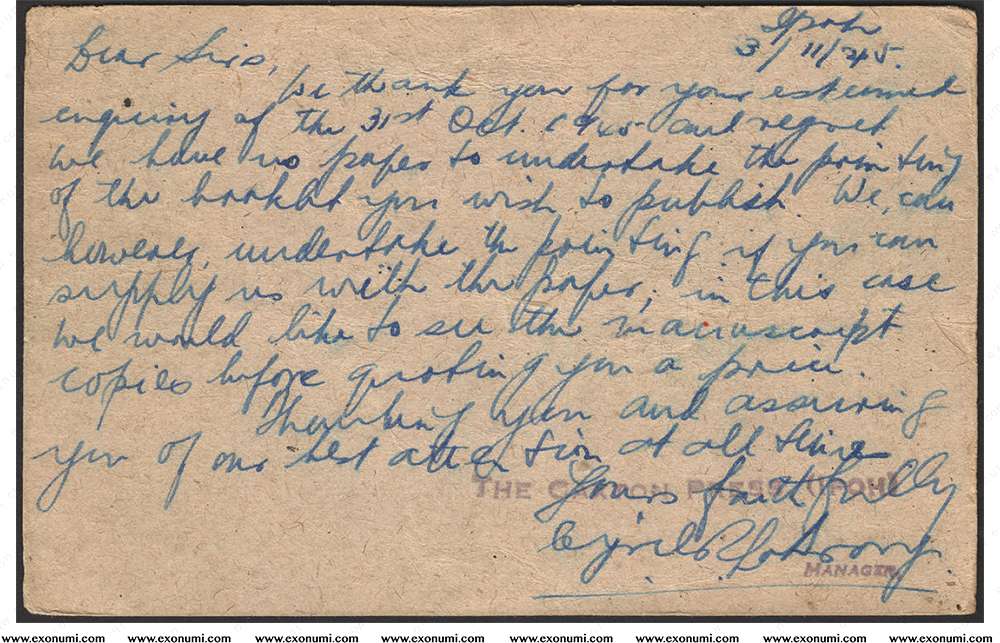 Ipoh
3/11/45.
Dear Sirs,
We thank you for your esteemed
enquiry of the 31st Oct. 1945 and regret
we have no paper to undertake the printing
of the booklet you wish to publish. We, can
however, undertake the printing if you can
supply us with the paper; in this case
we would like to see the manuscript
copies before quoting you a price.
Thanking you and assuring
you of our best attention at all times
THE CAXTON PRESS (IPOH)
Yours faithfully
Cyril
MANAGER.
www.exonumi.com www.exonumi.com www.exonumi.com www.exonumi.com www.exonumi.com www.exonumi.com www.exonumi.com www.exonumi.com